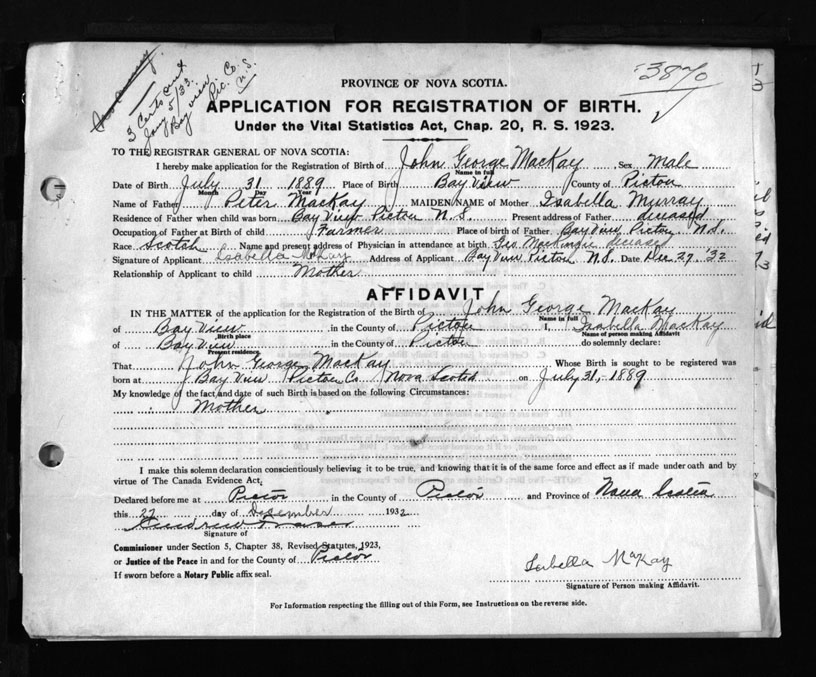 3 Certs sent
Jany 5/33.
Bay view
Pic. Co.
N.S.
3870
PROVINCE OF NOVA SCOTIA.
APPLICATION FOR REGISTRATION OF BIRTH.
Under the Vital Statistics Act, Chap. 20, R. S. 1923.
TO THE REGISTRAR GENERAL OF NOVA SCOTIA:
I hereby make application for the Registration of Birth of John George MacKay Sex Male
Name in full
Date of Birth July 31 1889 Place of Birth Bay View County of Pictou
Month Day Year
Name of Father Peter MacKay MAIDEN NAME of Mother Isabella Murray
Residence of Father when child was born Bay View Pictou N.S. Present address of Father deceased
Occupation of Father at Birth of child Farmer Place of birth of Father Bay View Pictou N.S.
Race Scotch Name and present address of Physician in attendance at birth Geo. MacKenzie deceased
Signature of Applicant Isabella McKay Address of Applicant Bay View Pictou N.S. Date Dec 27, '32
Relationship of Applicant to child Mother
AFFIDAVIT
IN THE MATTER of the application for the Registration of the Birth of John George MacKay
Name in full
of Bay View in the County of Pictou I, Isabella MacKay
Birth place Name of person making Affidavit
of Bay View in the County of Pictou do solemnly declare:
Present residence
That John George MacKay Whose Birth is sought to be registered was
born at Bay View Pictou Co. Nova Scotia on July 31, 1889
My knowledge of the fact and date of such Birth is based on the following Circumstances:
Mother
I make this solemn declaration conscientiously believing it to be true, and knowing that it is of the same force and effect as if made under oath and by
virtue of The Canada Evidence Act,
Declared before me at Pictou in the County of Pictou and Province of Nova Scotia
this 27 day of December 1932
Signature of
Commissioner under Section 5, Chapter 38, Revised Statutes, 1923,
or Justice of the Peace in and for the County of Pictou
If sworn before a Notary Public affix seal.
Isabella McKay
Signature of Person making Affidavit.
For Information respecting the filling out of this Form, see Instructions on the reverse side.